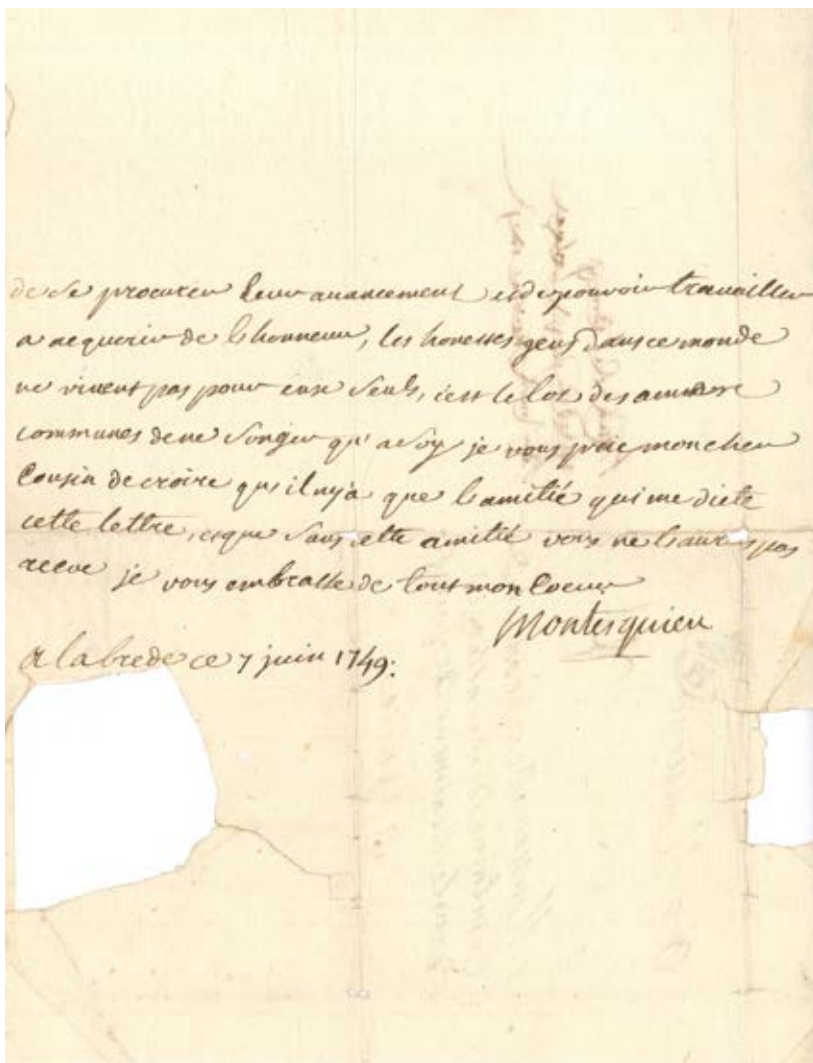 de se procurer leur avancement et de pouvoir travailler
a acquerir de lhonneur, les honestes gens dans ce monde
ne vivent pas pour eux seuls, cest le lot des ames
communes de ne songer qu'a soy je vous prie mon cher
Cousin de croire quil ny a que lamitié qui me dicte
cette lettre, et que sans cette amitié vous ne lauriés pas
receue je vous embrasse de tout mon Coeur
Montesquieu
a labrede ce 7 juin 1749: